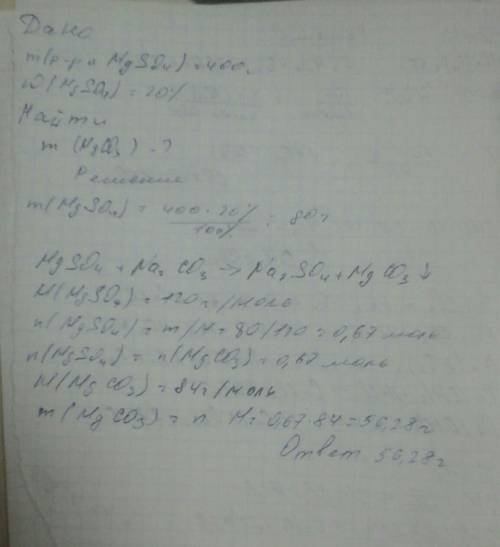 Дано
m(р-ра MgSO4) = 400г
W(MgSO4) = 20%
Найти
m (MgCO3) - ?
Решение
m(MgSO4) = 400·20% / 100% = 80г
MgSO4 + Na2CO3 → Na2SO4 + MgCO3↓
M(MgSO4) = 120г/моль
n(MgSO4) = m/M = 80/120 = 0,67 моль
n(MgSO4) = n(MgCO3) = 0,67 моль
M(MgCO3) = 84г/моль
m(MgCO3) = n M = 0,67·84 = 56,28г
Ответ 56,28г